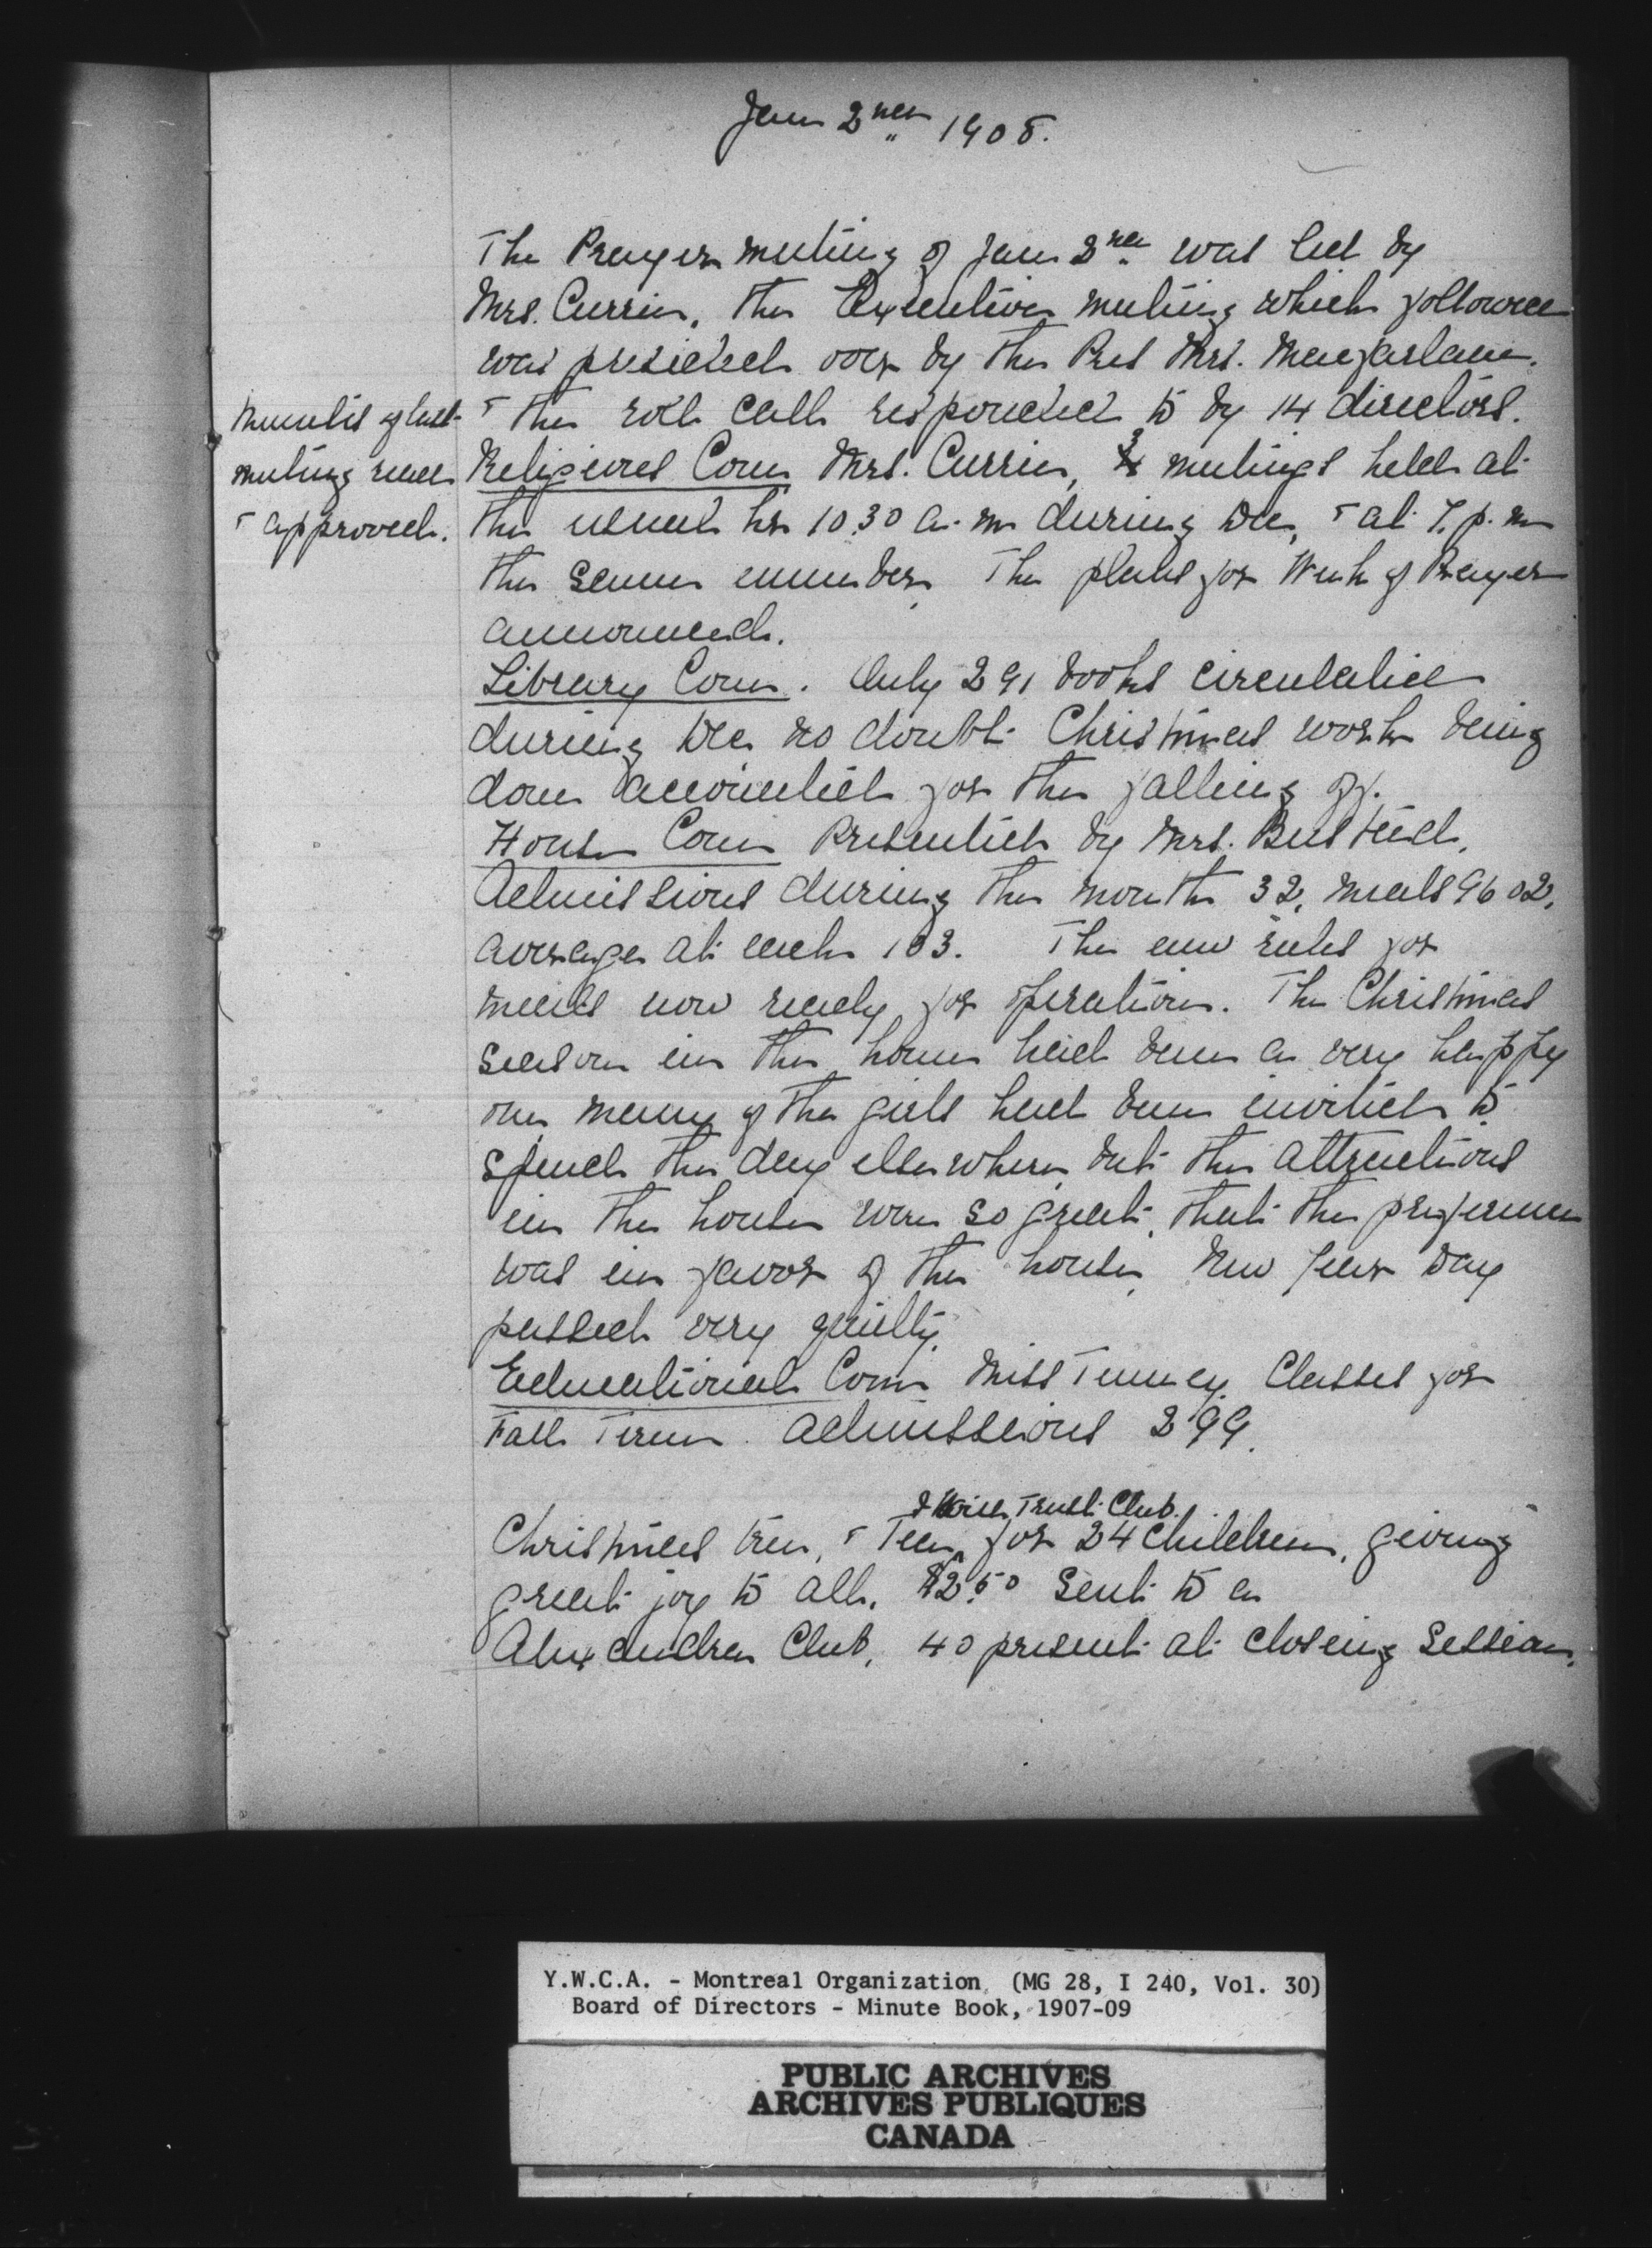 Jan 2nd 1908.
The Prayer meeting of Jan 2nd was led by
Mrs. Currie, the Executive meeting which followed
was presided over by the Pres Mrs. Macfarlane.
Minutes of last
meeting read
& approved.
& the roll call responded to by 14 directors.
Religious Com Mrs. Currie, 3 meetings held at
the usual hr 10.30 a.m during Dec, & at 7. p.m
the same number. The plans for Week of Prayer
announced.
Library Com. Only 291 books circulated
during Dec no doubt Christmas work being
done accounted for the falling off.
House Com Presented by Mrs. Busteed.
Admissions during the month 32, meals 9602,
average at each 103. The new rules for
meals now ready for operation. The Christmas
season in the home had been a very happy
one, many of the girls had been invited to
spend the day elsewhere but the attractions
in the house were so great, that the preference
was in favor of the house. New Year Day
passed very quietly.
Educational Com Miss Tenney. Classes for
Fall Term admissions 299.
I Will Trust Club.
Christmas tree, & Tea, for 24 children, giving
great joy to all. $2.50 sent to a
Alexandra Club, 40 present at closing session.
Y.W.C.A. - Montreal Organization (MG 28, I 240, Vol. 30)
Board of Directors - Minute Book, 1907-09
PUBLIC ARCHIVES
ARCHIVES PUBLIQUES
CANADA